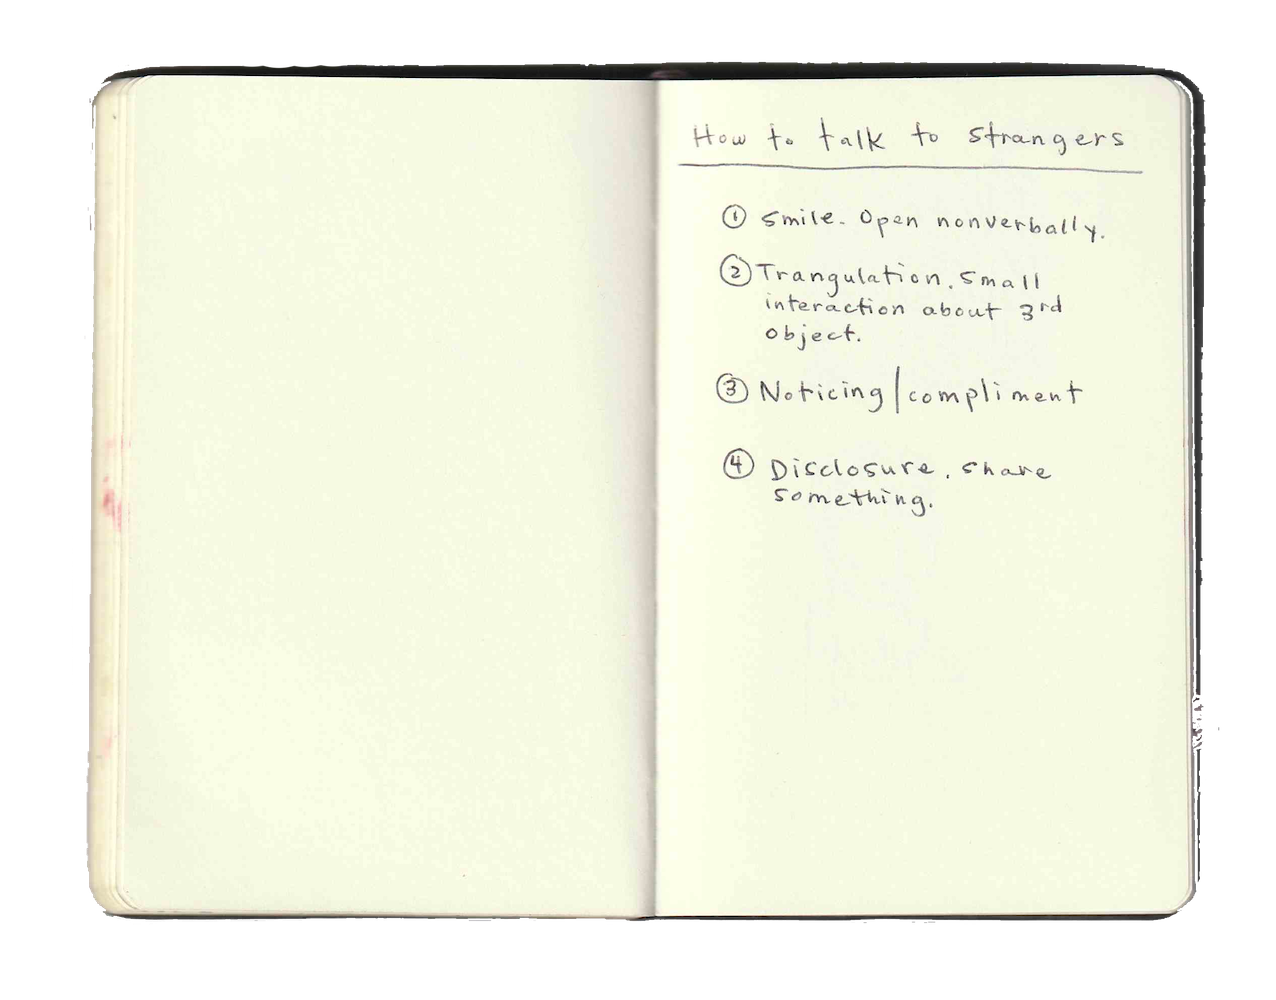 How to talk to strangers
① Smile. Open nonverbally.
② Trangulation. Small
interaction about 3rd
object.
③ Noticing/compliment
④ Disclosure. share
something.